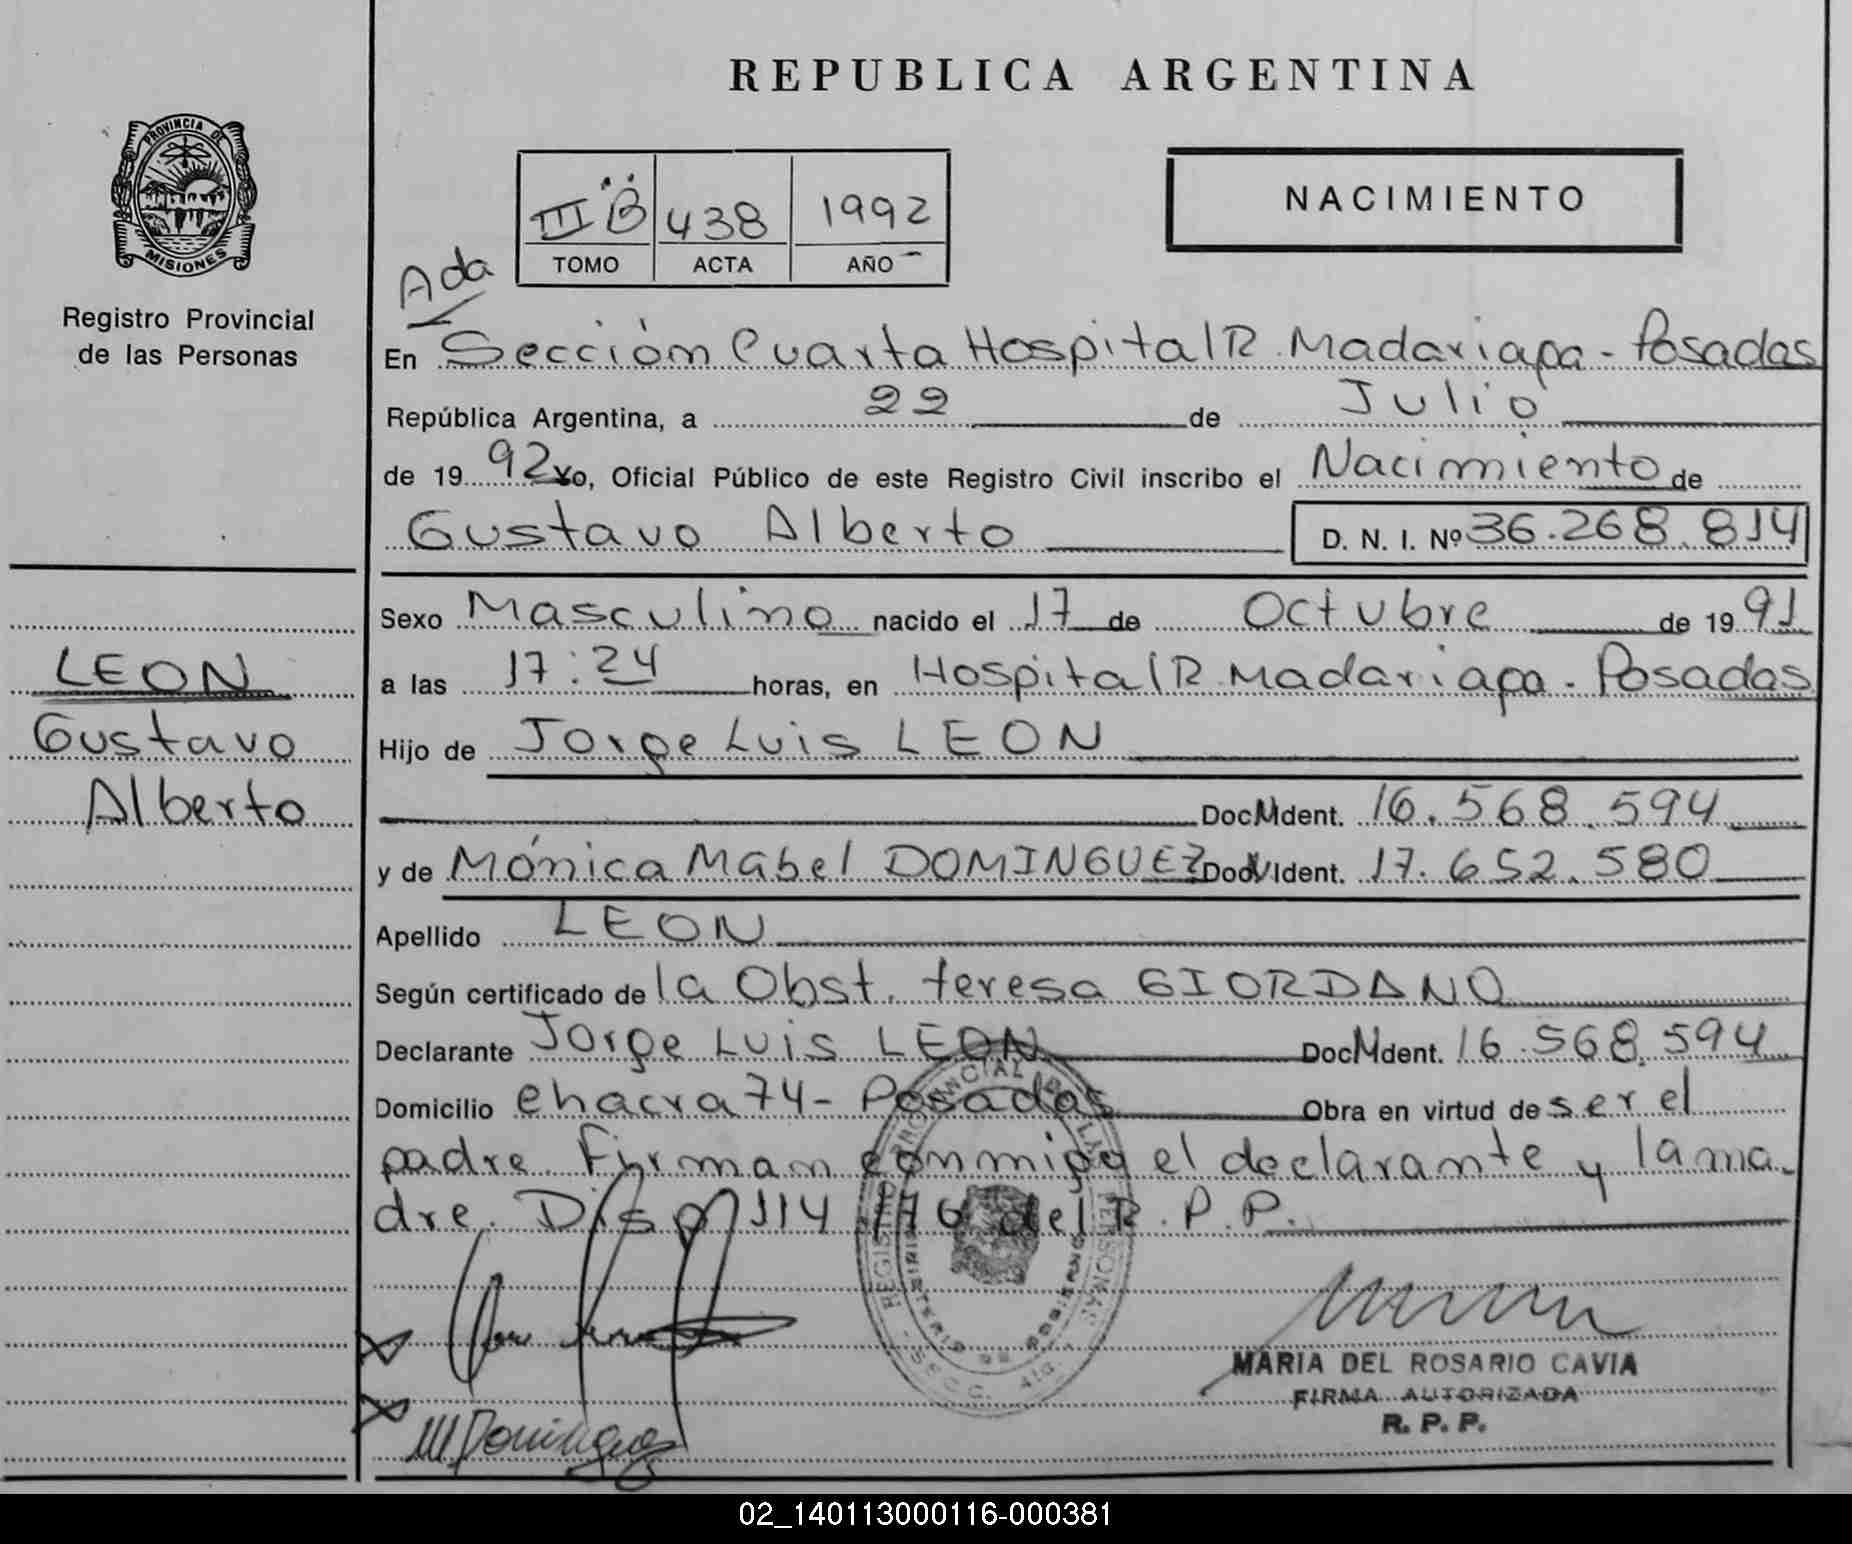 REPUBLICA ARGENTINA
PROVINCIA DE
MISIONES
Registro Provincial
de las Personas
III B 438 1992
TOMO ACTA AÑO
NACIMIENTO
Ada
En Sección Cuarta Hospital R. Madariaga - Posadas
República Argentina, a 22 de Julio
de 1992 Yo, Oficial Público de este Registro Civil inscribo el Nacimiento de
Gustavo Alberto D. N. I. Nº 36.268.814
Sexo Masculino nacido el 17 de Octubre de 1991
LEON
a las 17:24 horas, en Hospital R. Madariaga - Posadas
Gustavo
Hijo de Jorge Luis LEON
Alberto
Doc. Ident. 16.568.594
y de Mónica Mabel DOMINGUEZ Doc. Ident. 17.652.580
Apellido LEON
Según certificado de la Obst. teresa GIORDANO
Declarante Jorge Luis LEON Doc. Ident. 16.568.594
Domicilio chacra 74 - Posadas Obra en virtud de ser el
padre. Firman conmigo el declarante y la ma-
dre. Disp 114/76 del R.P.P.
REGISTRO PROVINCIAL DE LAS PERSONAS
MINISTERIO DE GOBIERNO
SECC. 4ta
M Dominguez
MARIA DEL ROSARIO CAVIA
FIRMA AUTORIZADA
R. P. P.
02_140113000116-000381